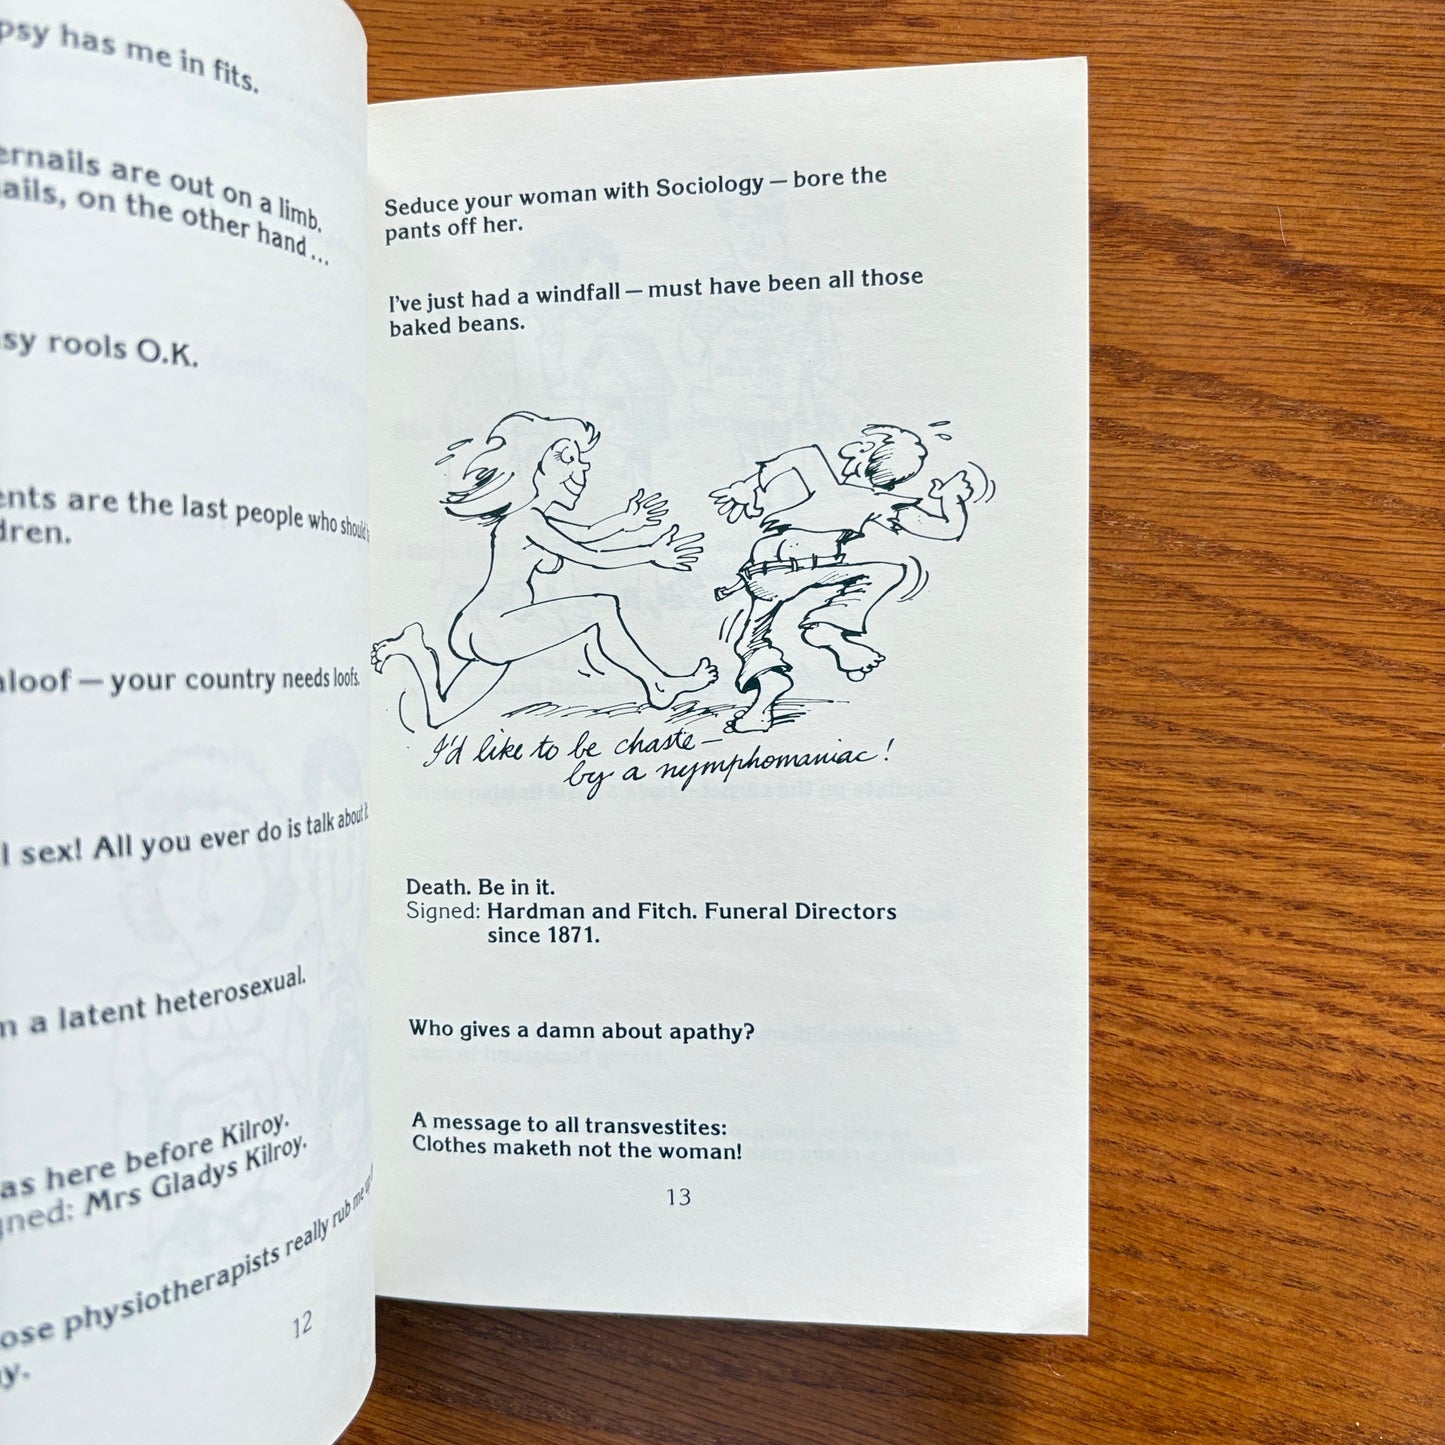 psy has me in fits.
ernails are out on a limb.
ails, on the other hand ...
sy rools O.K.
ents are the last people who should
dren.
aloof — your country needs loofs.
l sex! All you ever do is talk about it
a latent heterosexual.
as here before Kilroy.
gned: Mrs Gladys Kilroy.
ose physiotherapists really rub me
y.
12
Seduce your woman with Sociology — bore the
pants off her.
I've just had a windfall — must have been all those
baked beans.
I'd like to be chaste —
by a nymphomaniac!
Death. Be in it.
Signed: Hardman and Fitch. Funeral Directors
since 1871.
Who gives a damn about apathy?
A message to all transvestites:
Clothes maketh not the woman!
13